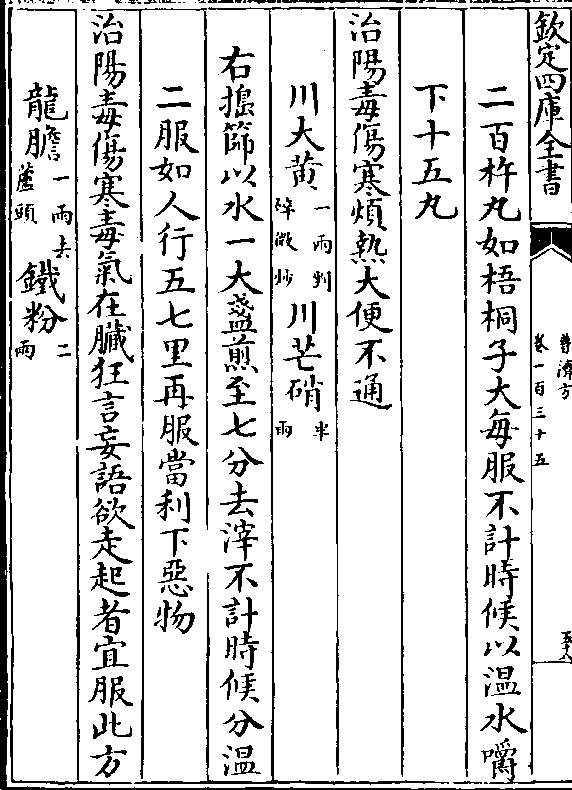 欽定四庫全書
普濟方
卷一百三十五
五十八
二百杵丸如梧桐子大每服不計時候以温水嚼
下十五丸
治陽毒傷寒煩熱大便不通
川大黄一兩剉碎微炒川芒硝半兩
右搗篩以水一大盞煎至七分去滓不計時候分温
二服如人行五七里再服當利下惡物
治陽毒傷寒毒氣在臟狂言妄語欲走起者宜服此方
龍膽一兩去蘆頭鐵粉二兩